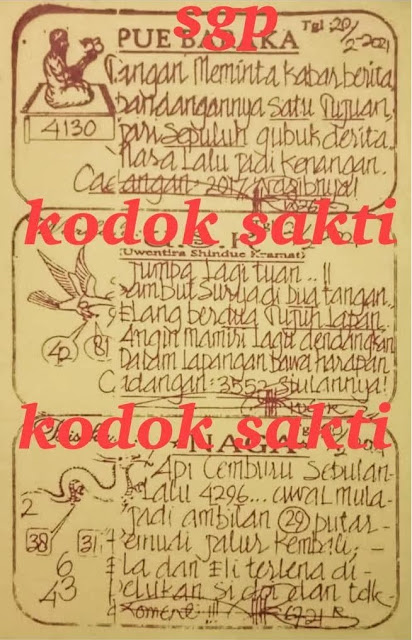 sgp
PUE BARAKA Tgl: 20/2-2021
Tangan Meminta kabar berita
pandangannya satu tujuan,
Dari Sepuluh gubuk derita.
Masa lalu jadi kenangan.
4130
Cadangan 2017
kodok sakti
(Uwentira Shindue Kramat)
Jumpa lagi tuan..!!
Sambut Surga di dua tangan.
Elang berdua Tujuh Lapan.
Angin Mamiri Lagu dendangkan
Dalam Lapangan bawa harapan
42 81
Cadangan: 3552
kodok sakti
NAGA
Api Cemburu Sebulan
Lalu 4296... awal mula
jadi ambilan 29 putar-
kemudi jalur kembali,
2
38 31
Ela dan Eli terlena di-
6
pelukan si doi dan tdk
43
Komene !!! 6721